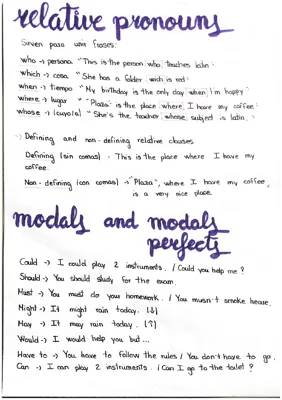 relative pronouns
Sirven para unir frases:
who → persona "This is the person who teaches latin"
which → cosa "She has a folder wich is red"
when → tiempo "My birthday is the only day when I'm happy"
where → lugar "'Plaza' is the place where I have my coffee"
whose → (cuyo/a) "She's the teacher whose subject is latin."
Defining and non-defining relative clauses
Defining (sin comas) · This is the place where I have my
coffee.
Non-defining (con comas) → "Plaza", where I have my coffee,
is a very nice place.
modals and modals
perfects
Could → I could play 2 instruments. / Could you help me?
Should → You should study for the exam.
Must → You must do your homework. / You musn't smoke
Might → It might rain today. (↓)
May → It may rain today. (↑)
Would → I would help you but...
Have to → You have to follow the rules / You don't have to go.
Can → I can play 2 instruments. / Can I go to the toilet?